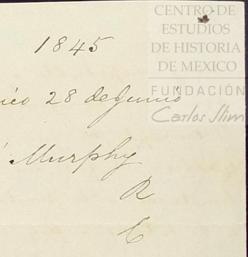 CENTRO DE
ESTUDIOS
DE HISTORIA
DE MEXICO
FUNDACIÓN
Carlos Slim
1845
ico 28 de Junio
Murphy
R
C